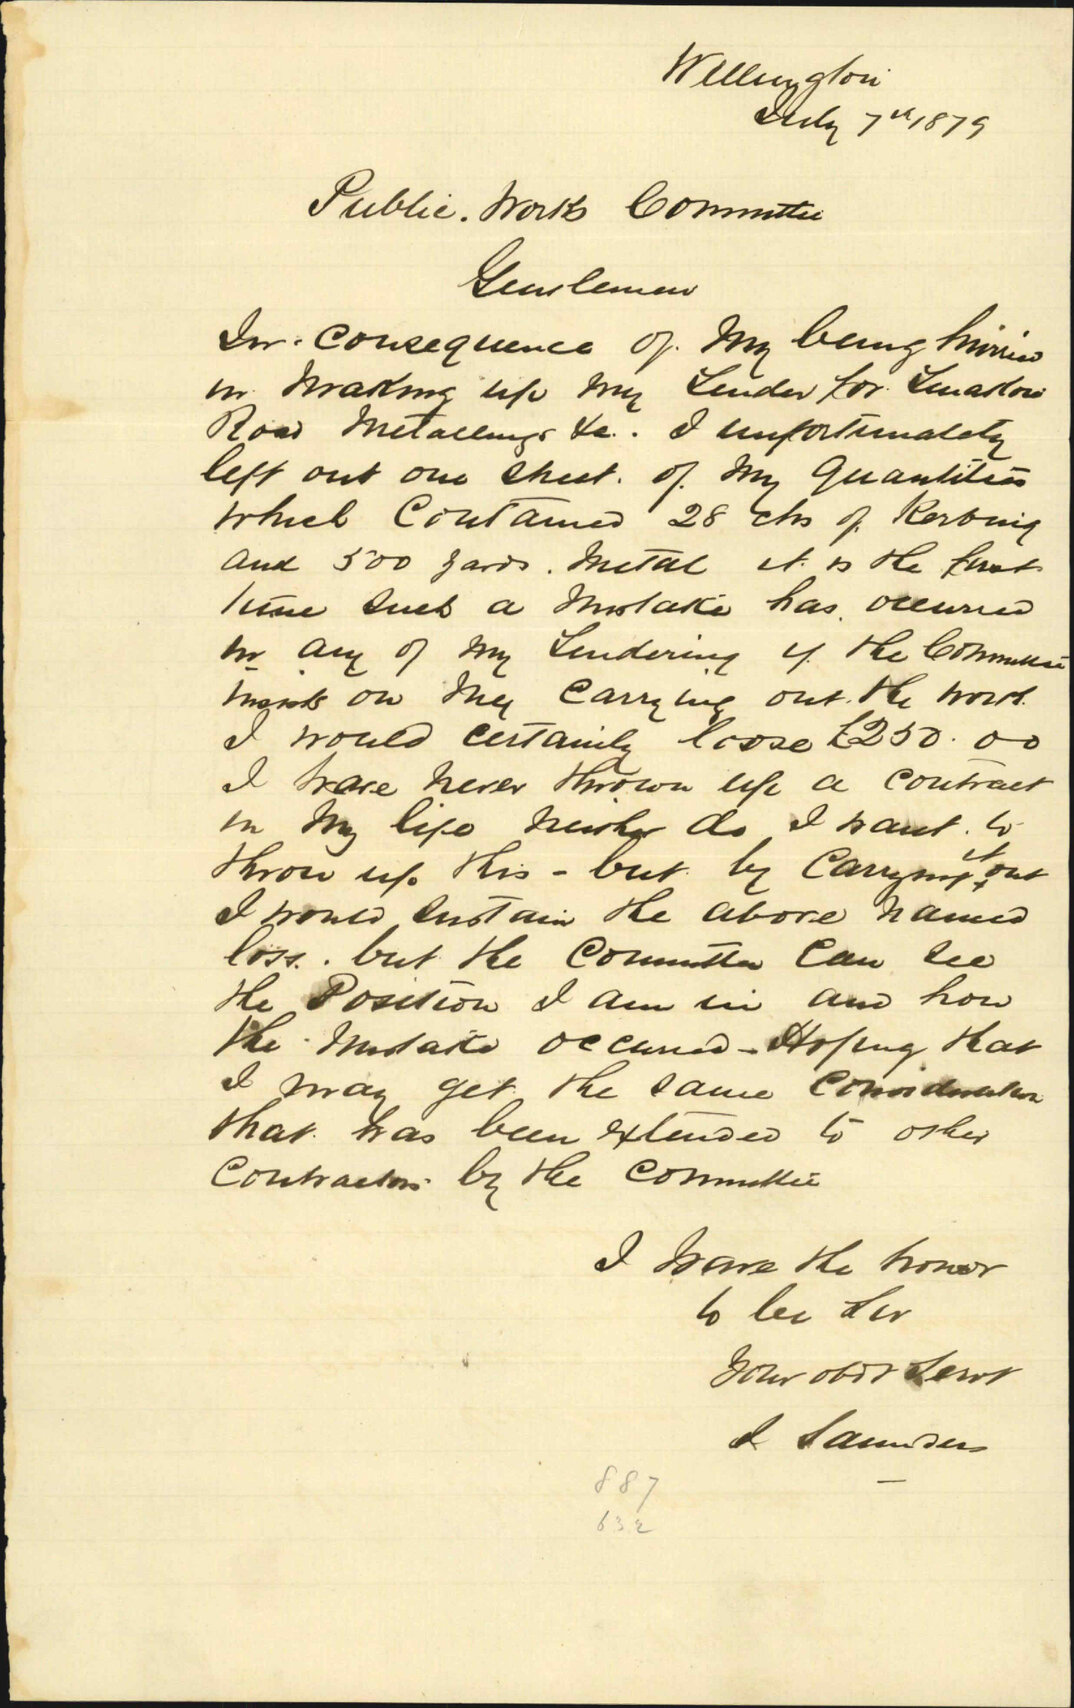 Wellington
July 7th 1879
Public. Works Committee
Gentlemen
In. Consequence of. My being hurried
in Making up my Tender for Tinakori
Road Metalling &c. I unfortunately
left out one sheet. of. My Quantities
which Contained 28 chs of. Kerbing
and 500 yards. Metal it is the first
time such a Mistake has occurred
in any of My Tendering if the Committee
insists on Me Carrying out the work
I would certainly loose £250.00
I have never thrown up a contract
in My life Neither do I want to
throw up this - but by Carrying it out
I would sustain the above Named
loss. but the Committee Can see
the Position I am in and how
the Mistake occured - Hoping that
I may get the same Consideration
that has been extended to other
Contractors by the Committee
I have the honor
to be Sir
Your obdt Servt
J Saunders
887
632